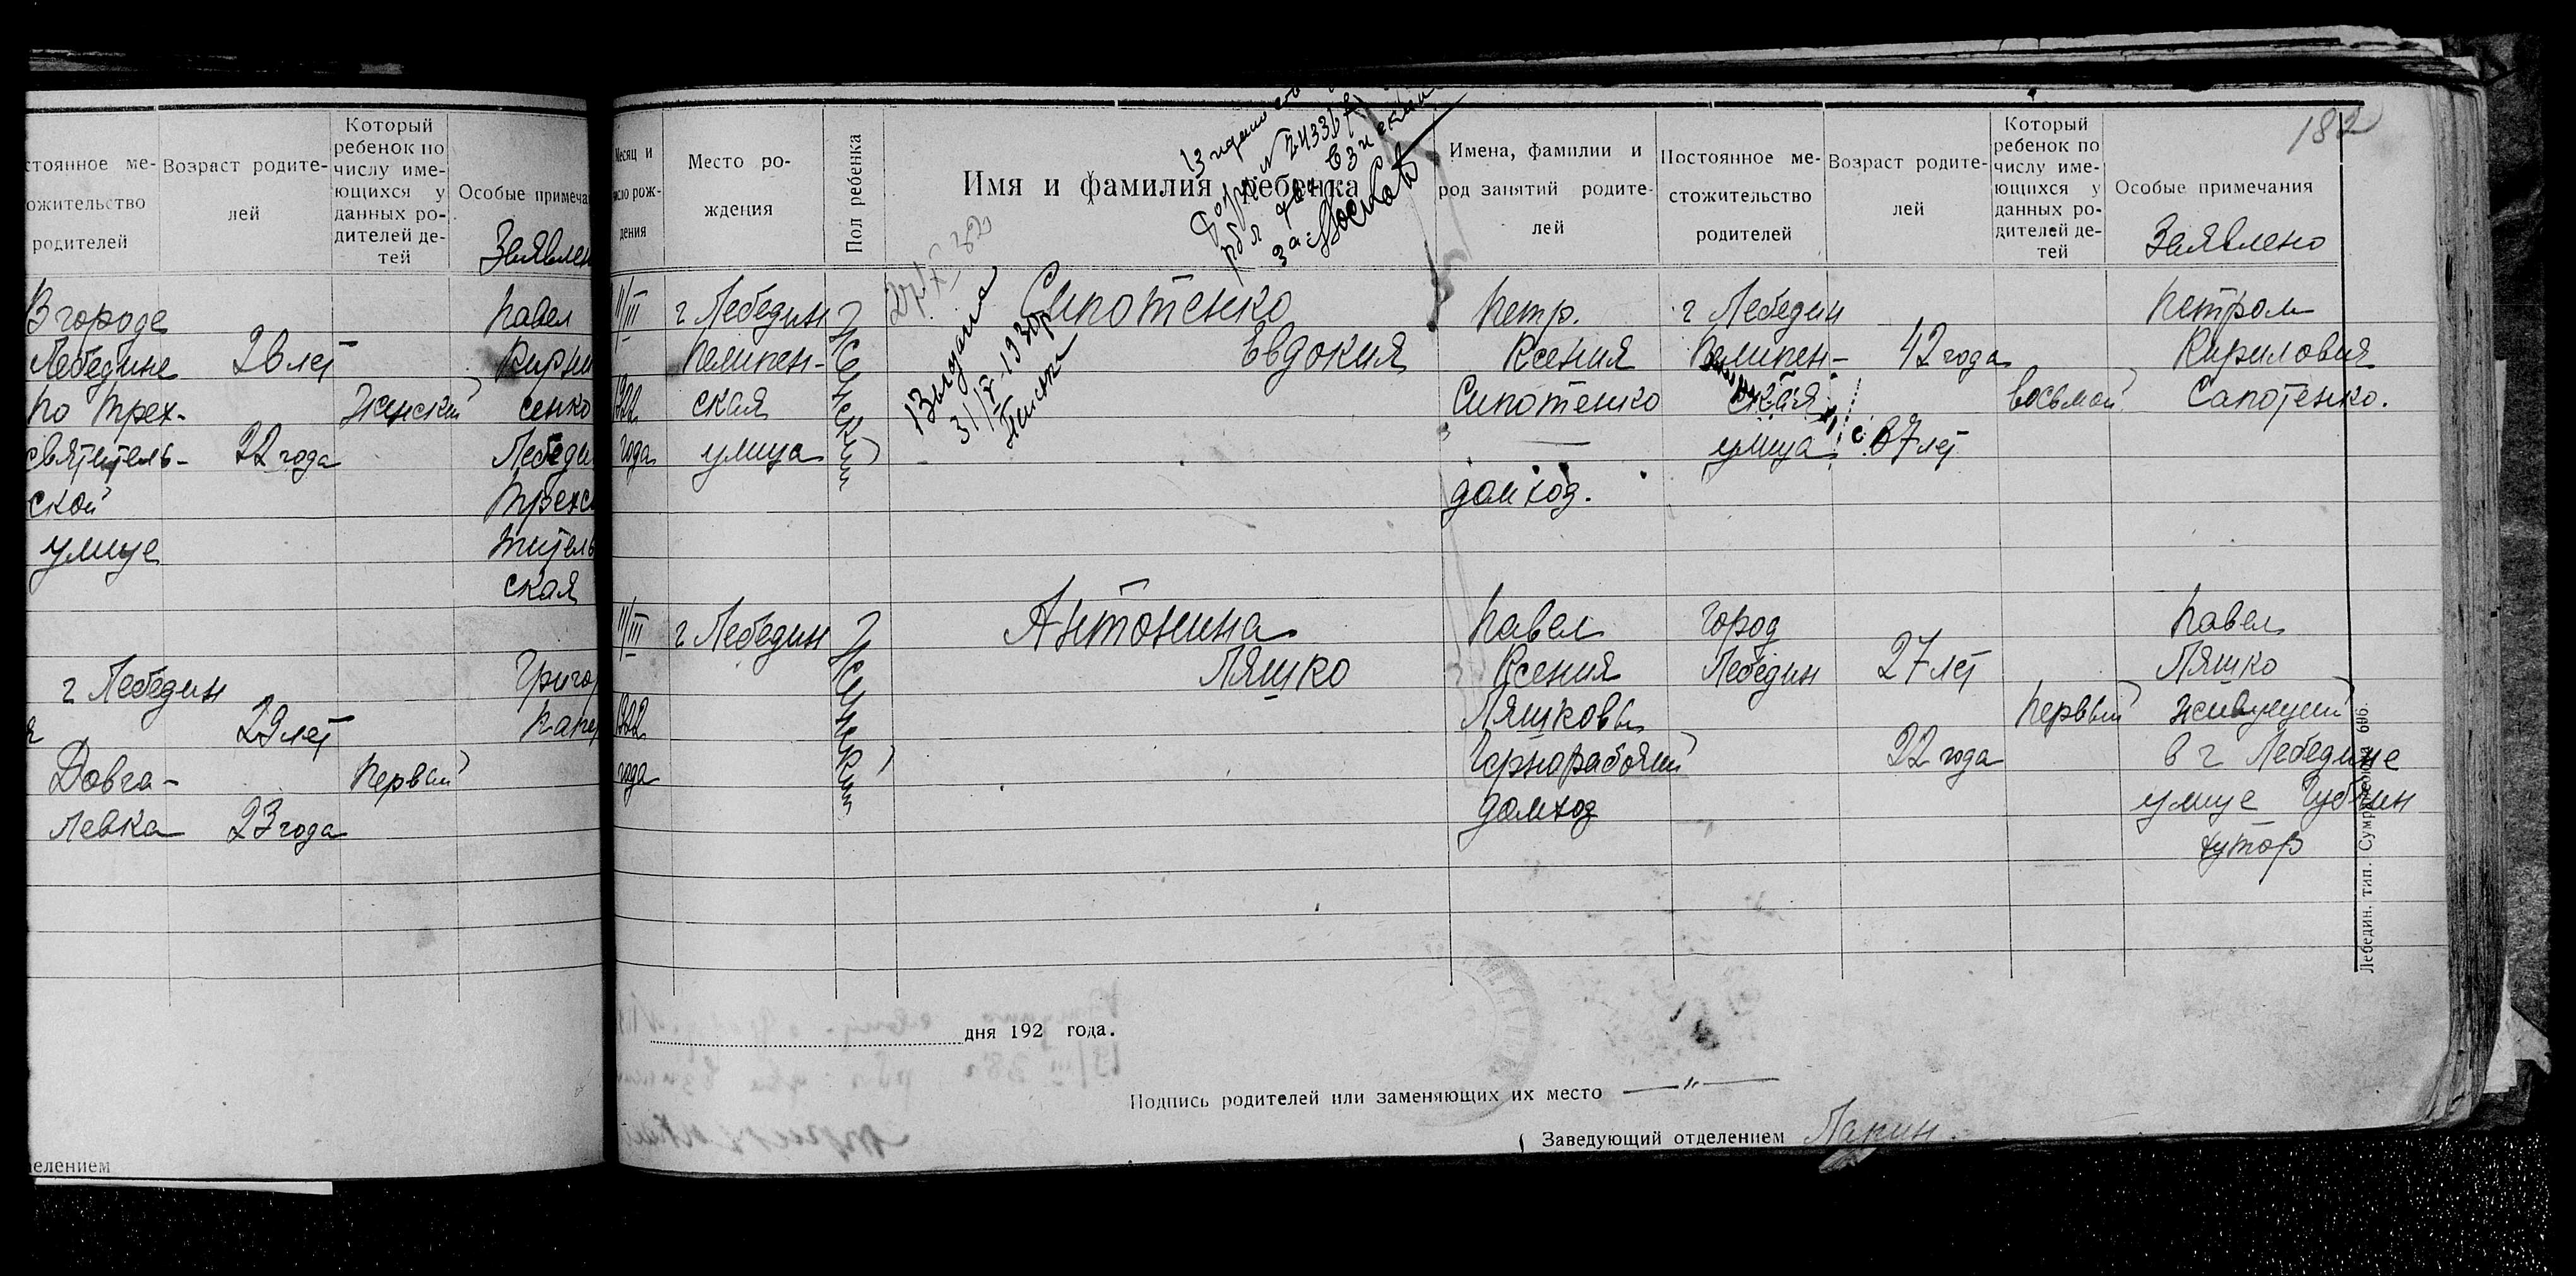 стоянное ме-
ожительство
родителей
Возраст родите-
лей
Который
ребенок по
числу име-
ющихся у
данных ро-
дителей де-
тей
Особые примеча
Заявлен
В городе
Лебедине
по трех-
святитель-
ской
улице
26 лет
22 года
Женский
Павел
сенко
Лебеди
Трехс
титель
ская
г Лебедин
Довга-
левка
29 лет
23 года
Первый
Григо
елением
182
Месяц и
число рож-
дения
Место ро-
ждения
Пол ребенка
Имя и фамилия ребенка
Имена, фамилии и
род занятий родите-
лей
Постоянное ме-
стожительство
родителей
Возраст родите-
лей
Который
ребенок по
числу име-
ющихся у
данных ро-
дителей де-
тей
Особые примечания
Заявлено
11/III
1922
года
г Лебедин
Пелипен-
ская
улица
Женский
Выдана
Сипотенко
Евдокия
Петр.
Ксения
Сипотенко
домход.
г Лебедин
Пелипен-
ская
улица
42 года
37 лет
восьмой
Петром
Кирилович
Сапотенко.
11/III
1922
года
г Лебедин
Женский
Антонина
Ляшко
Павел
Ксения
Ляшковы
Чернорабочий
домход
город
Лебедин
27 лет
22 года
Первый
Павел
Ляшко
живущий
в г Лебедине
улице
хутор
дня 192 года.
Подпись родителей или заменяющих их место
Заведующий отделением